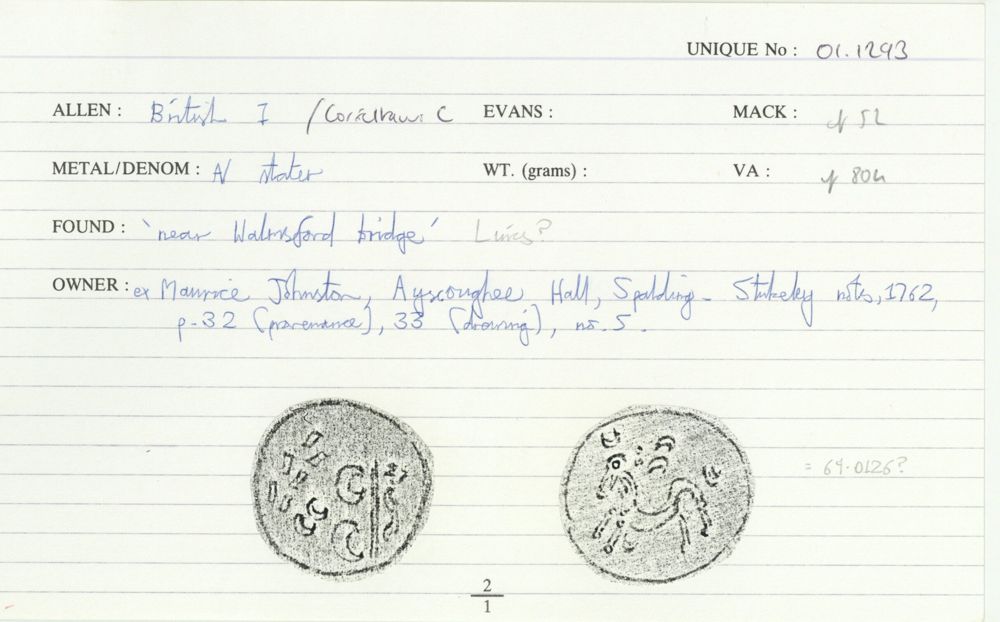 UNIQUE No : 01.1293
ALLEN : British I /Corieltauvi C EVANS : MACK : cf 52
METAL/DENOM : A/ stater WT. (grams) : VA : cf 804
FOUND : 'near Walmsford bridge' Lincs?
OWNER : ex Maurice Johnston, Ayscoughee Hall, Spalding - Stukeley notes, 1762,
p. 32 (provenance), 33 (drawing), no. 5.
= 64.0126?
2
1